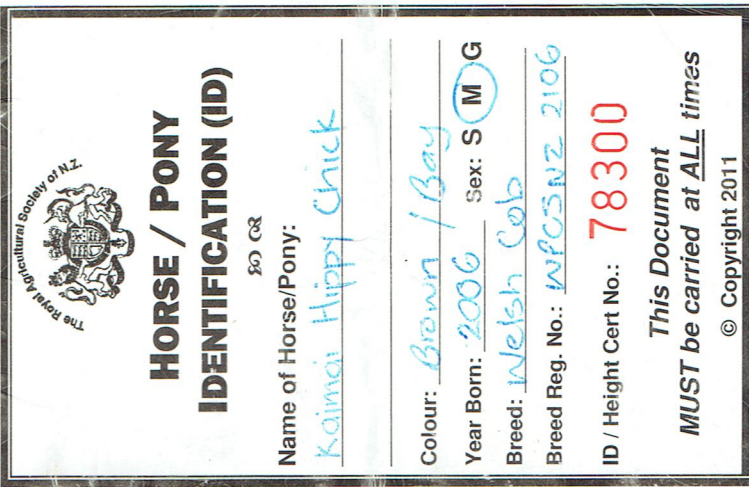 The Royal Agricultural Society of N.Z.
HORSE / PONY
IDENTIFICATION (ID)
Name of Horse/Pony:
Kaimai Hippy Chick
Colour: Brown / Bay
Year Born: 2006 Sex: S M G
Breed: Welsh Cob
Breed Reg. No.: WPCSNZ 2106
ID / Height Cert No.: 78300
This Document
MUST be carried at ALL times
© Copyright 2011